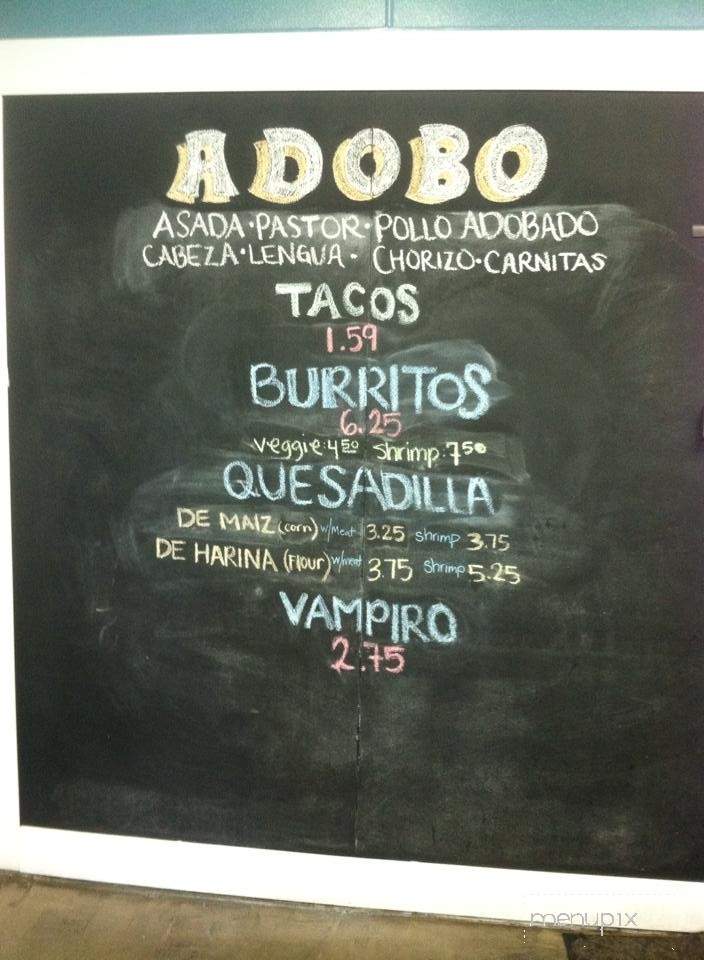 ADOBO
ASADA·PASTOR·POLLO ADOBADO
CABEZA·LENGUA· CHORIZO·CARNITAS
TACOS
1.59
BURRITOS
6.25
veggie:4.50 shrimp:7.50
QUESADILLA
DE MAIZ (corn) w/meat 3.25 shrimp 3.75
DE HARINA (Flour) w/meat 3.75 shrimp 5.25
VAMPIRO
2.75
menupix